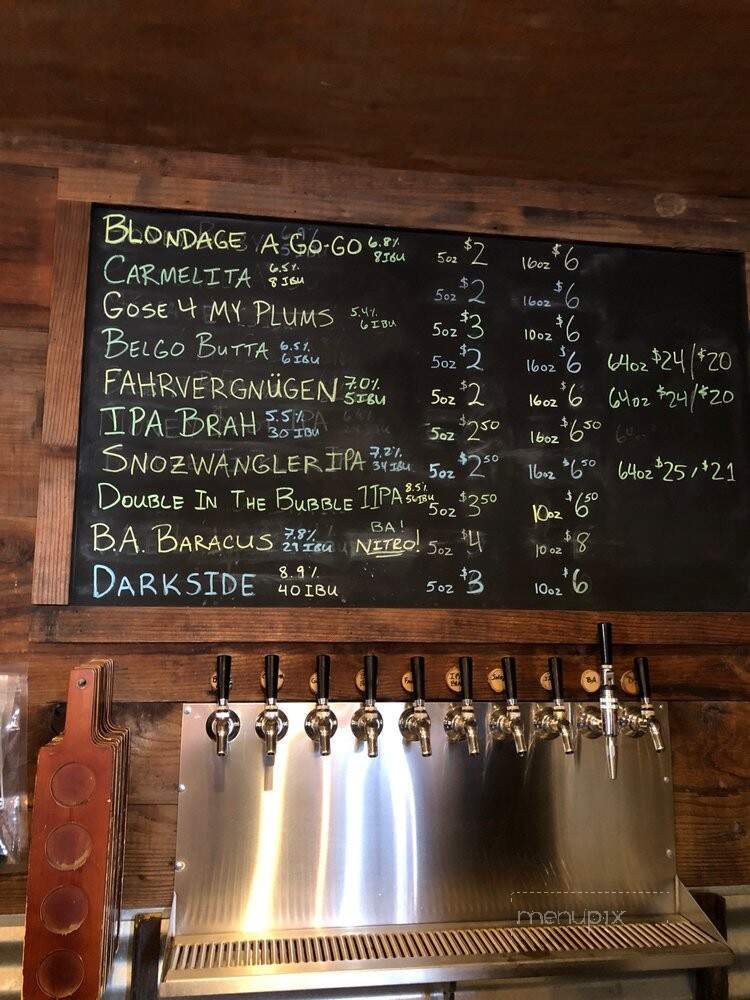 BLONDAGE A GO-GO 6.8% 8 IBU 5oz $2 16oz $6
CARMELITA 6.5% 8 IBU 5oz $2 16oz $6
GOSE 4 MY PLUMS 5.4% 6 IBU 5oz $3 10oz $6
BELGO BUTTA 6.5% 6 IBU 5oz $2 16oz $6 64oz $24/$20
FAHRVERGNÜGEN 7.0% 5 IBU 5oz $2 16oz $6 64oz $24/$20
IPA BRAH 5.5% 30 IBU 5oz $2.50 16oz $6.50
SNOZWANGLER IPA 7.2% 34 IBU 5oz $2.50 16oz $6.50 64oz $25/$21
DOUBLE IN THE BUBBLE IIPA 8.5% 56 IBU 5oz $3.50 10oz $6.50
B.A. BARACUS 7.8% 29 IBU BA! NITRO! 5oz $4 10oz $8
DARKSIDE 8.9% 40 IBU 5oz $3 10oz $6
IPA
BA
menupix